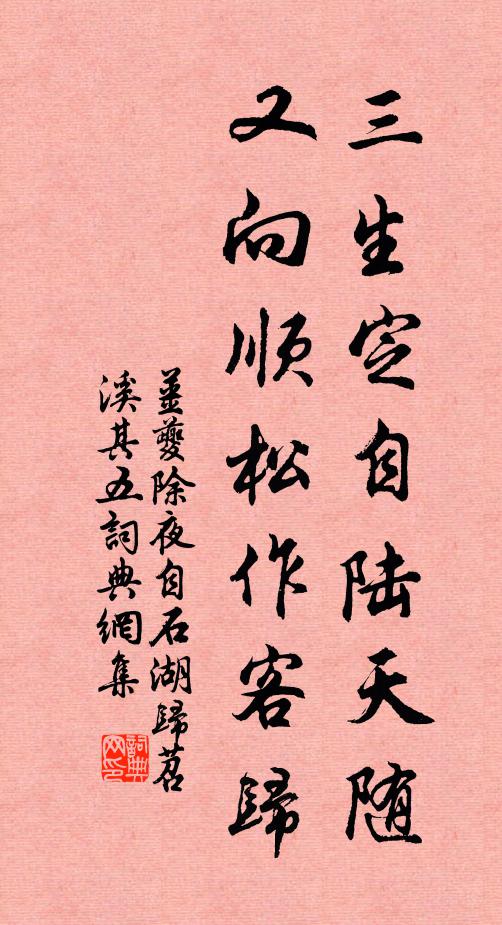 三生定自陆天随
又向顺松作客歸
姜夔除夜自石湖歸苕
溪其五詞典網集
詞典网印